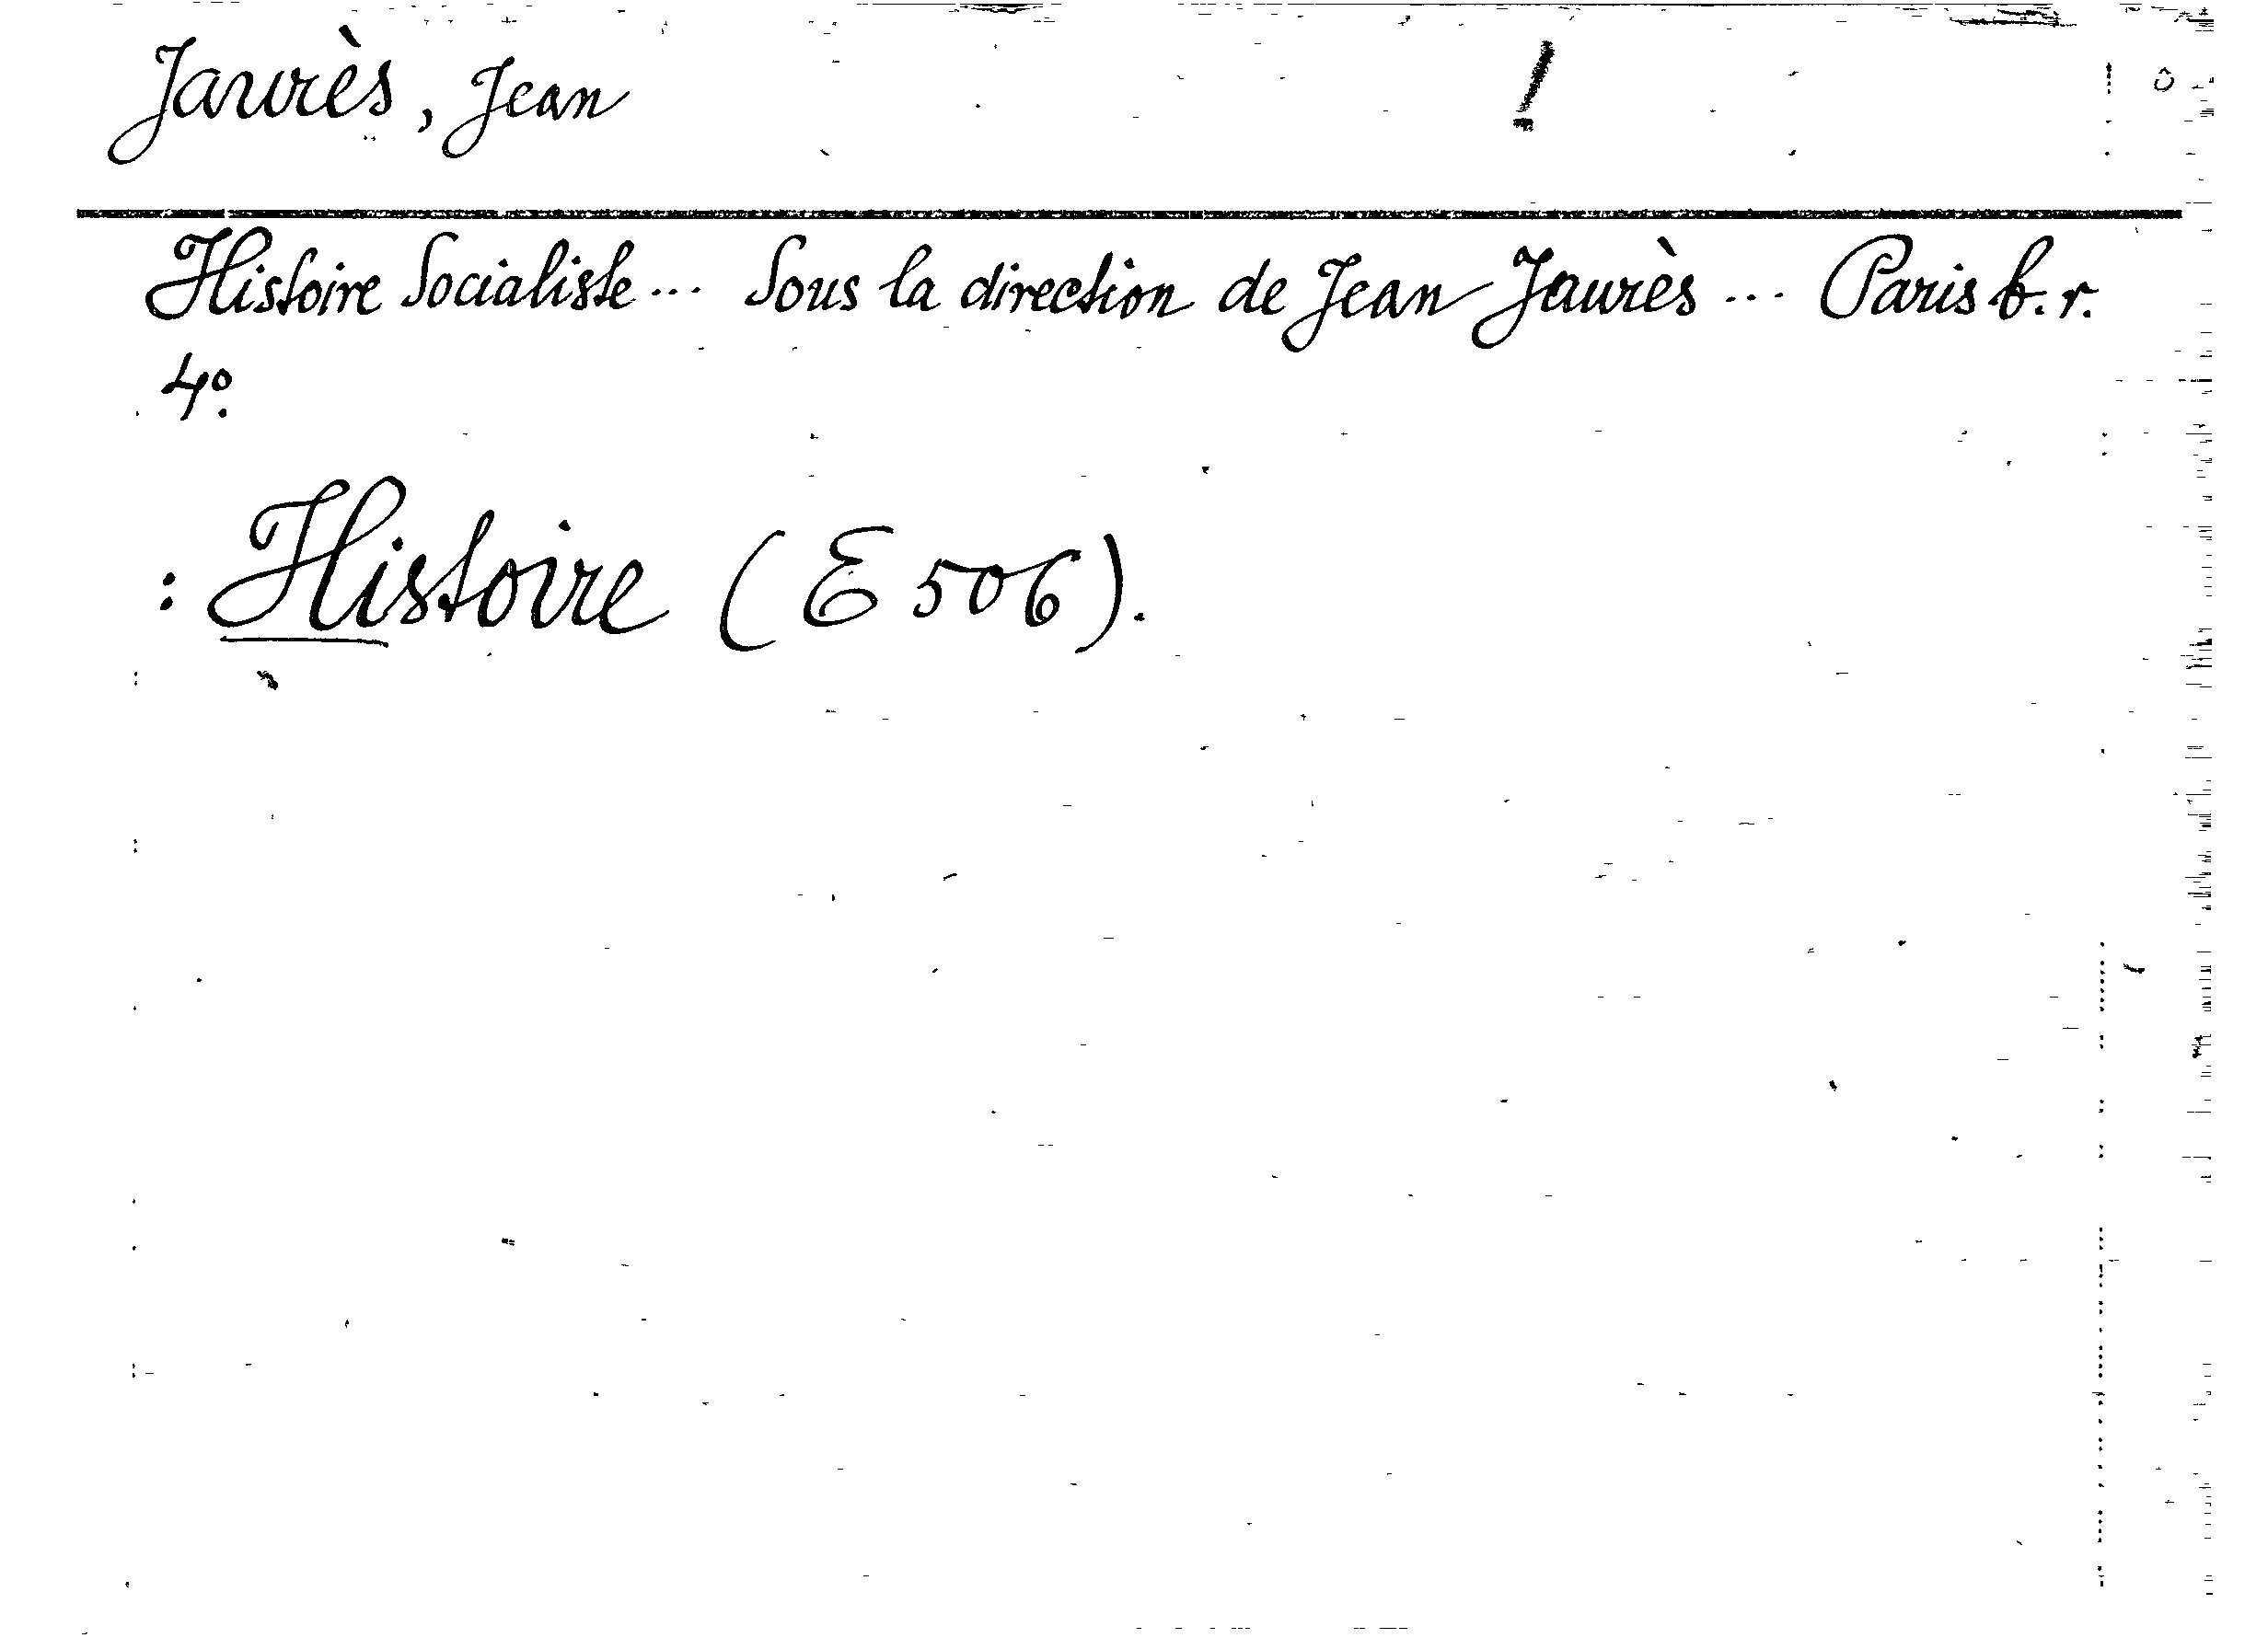 Jaurès, Jean !
Histoire Socialiste... Sous la direction de Jean Jaurès... Paris b.r.
4°.
: Histoire (E 506).